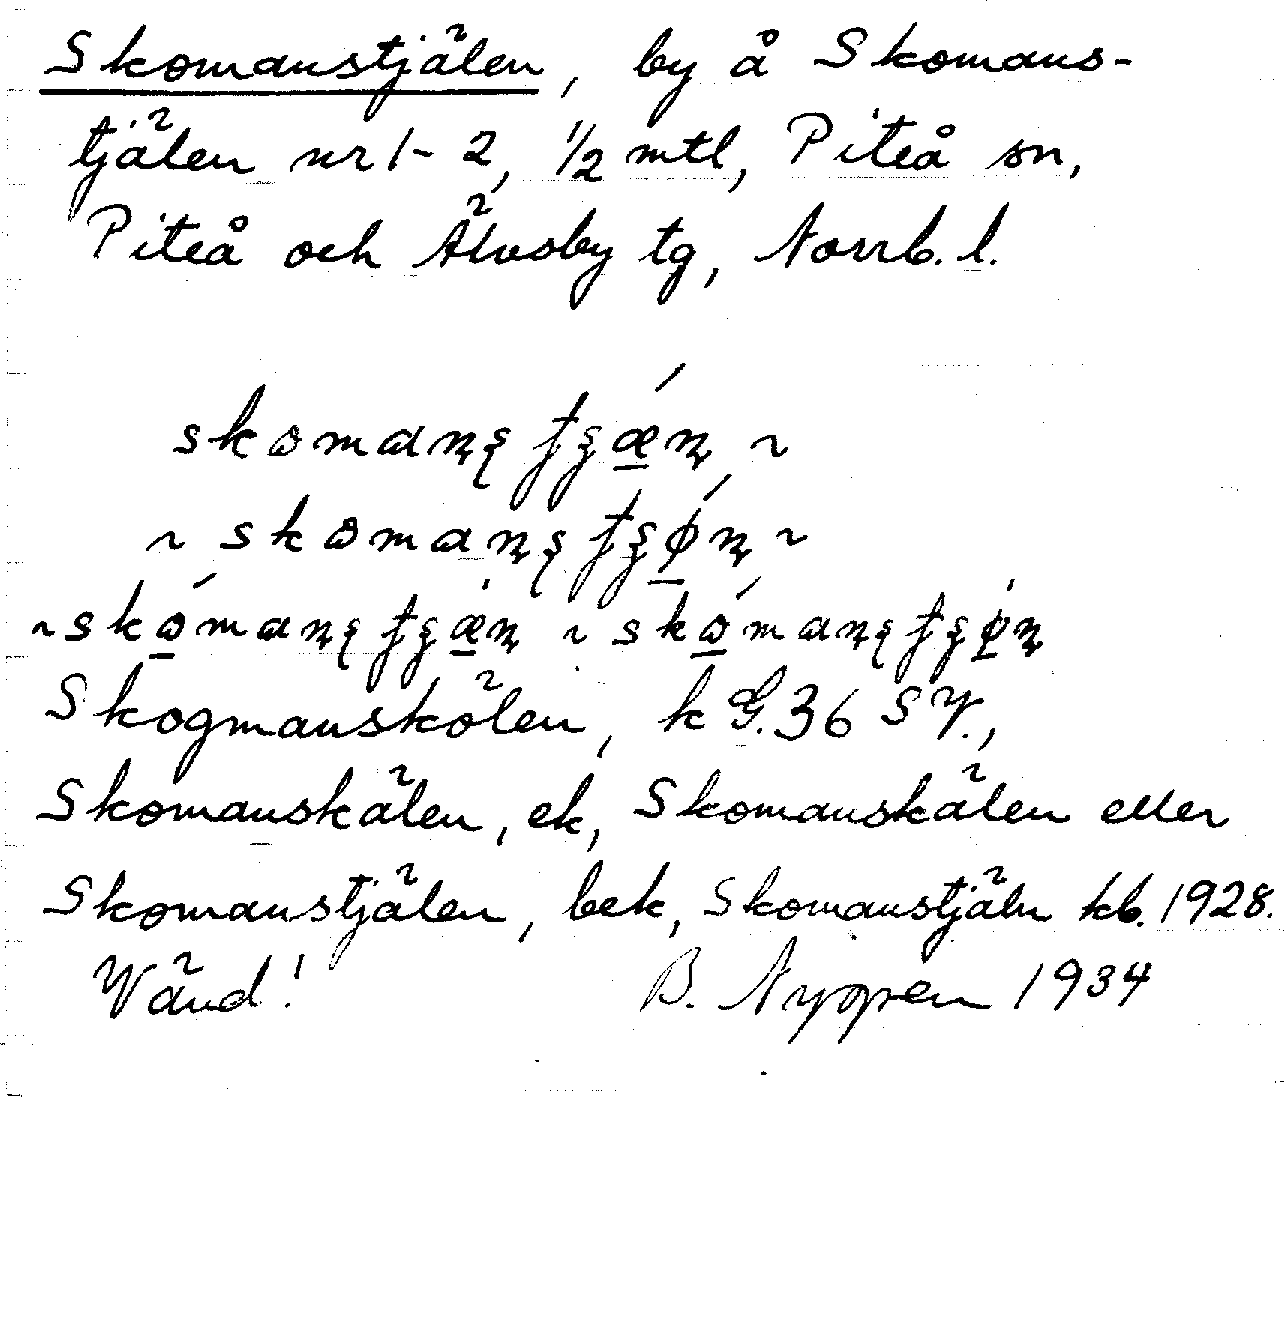 Skomanstjälen, by å Skomans-
tjälen nr 1-2, 1/2 mtl, Piteå sn,
Piteå och Älvsby tg, Norrb. l.
~
~ ~
~ ~
Skogmanskölen, k G.36 SV.,
Skomanskälen, ek, Skomanskälen eller
Skomanstjälen, bek, Skomanstjäln kb. 1928.
Vänd! B. Nyppen 1934